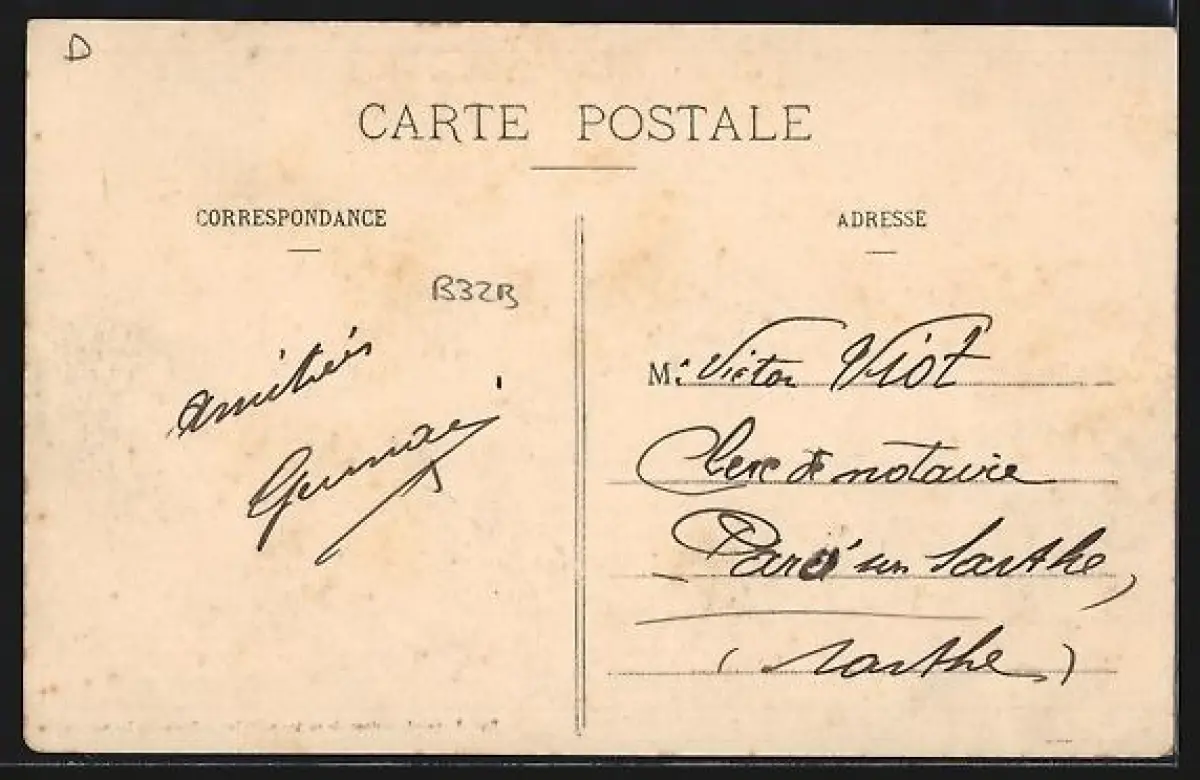 D
CARTE POSTALE
CORRESPONDANCE
B32B
amitiés
ADRESSE
M. Victor Viot
Clerc de notaire
Parcé sur Sarthe,
(Sarthe)